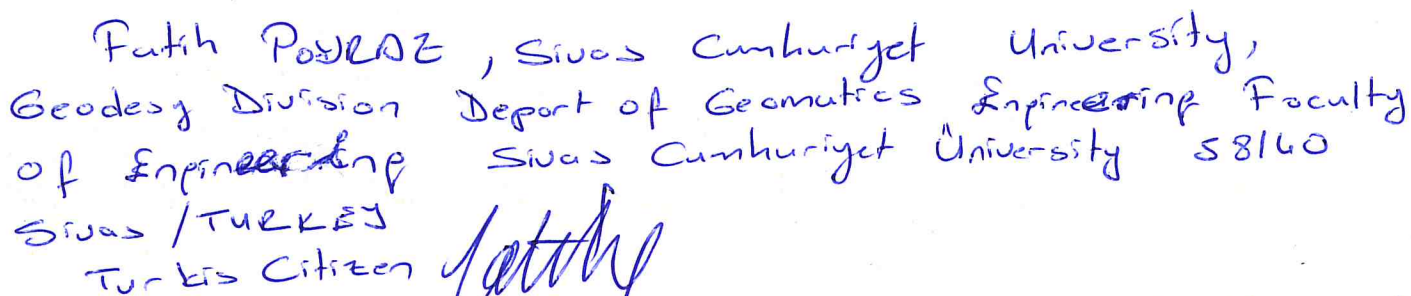 Fatih POYRAZ, Sivas Cumhuriyet University,
Geodesy Division Depart of Geomatics Engineering Faculty
of Engineering Sivas Cumhuriyet Üniversity 58140
Sivas / TURKEY
Turkis Citizen